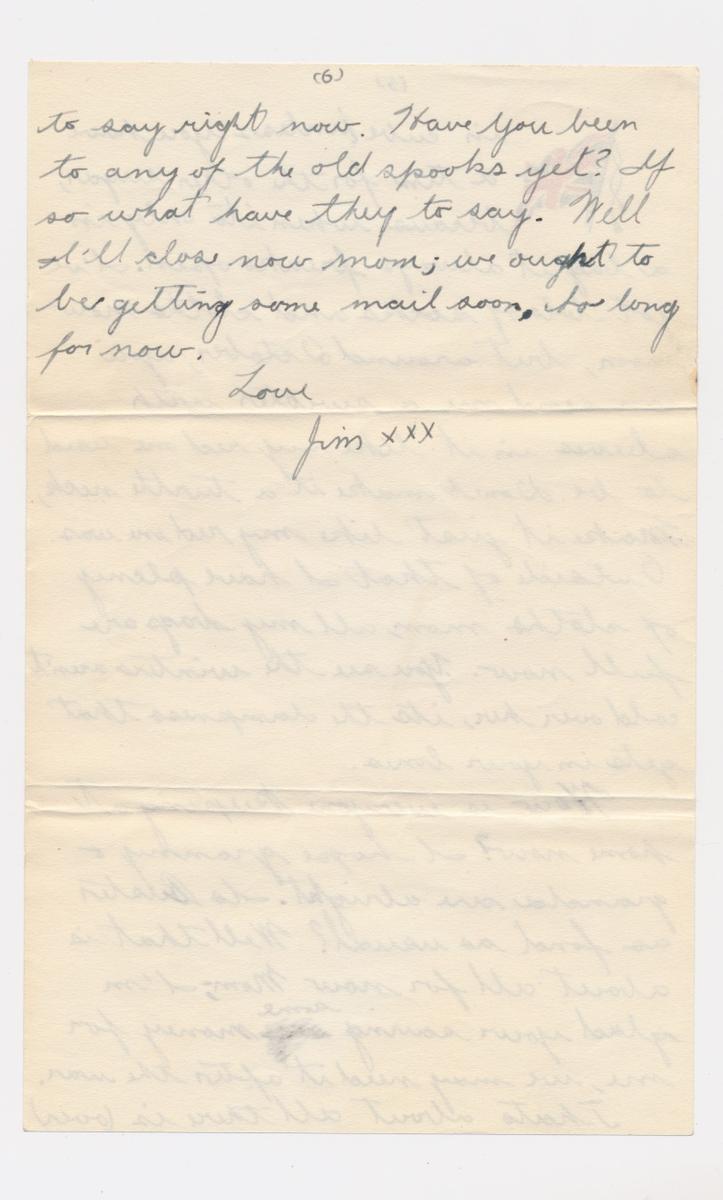 (6)
to say right now. Have you been
to any of the old spooks yet? If
so what have they to say. Well
I'll close now mom; we ought to
be getting some mail soon, So long
for now.
Love
Jim xxx